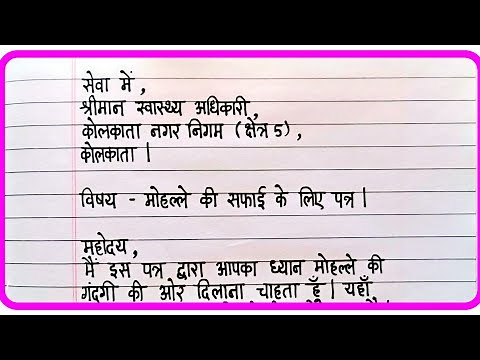 सेवा में,
श्रीमान स्वास्थ्य अधिकारी,
कोलकाता नगर निगम (क्षेत्र 5),
कोलकाता |
विषय - मोहल्ले की सफाई के लिए पत्र |
महोदय,
मैं इस पत्र द्वारा आपका ध्यान मोहल्ले की
गंदगी की ओर दिलाना चाहता हूँ | यहाँ